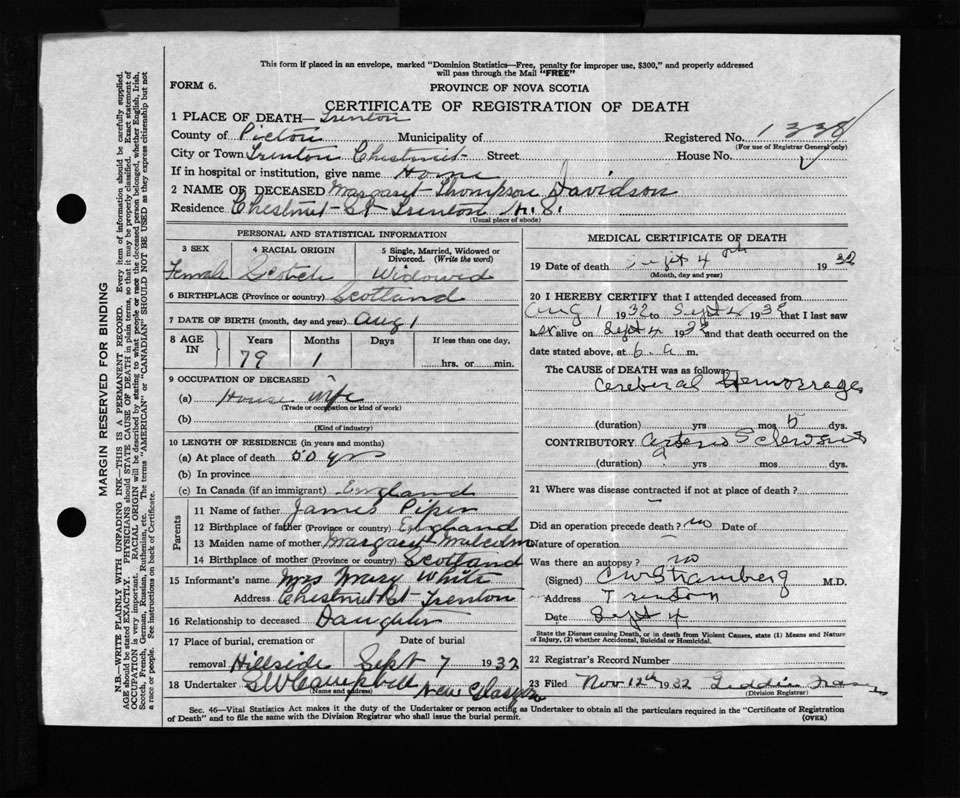 This form if placed in an envelope, marked "Dominion Statistics—Free, penalty for improper use, $300," and properly addressed
will pass through the Mail "FREE"
FORM 6.
PROVINCE OF NOVA SCOTIA
CERTIFICATE OF REGISTRATION OF DEATH
1 PLACE OF DEATH— Trenton
County of Pictou Municipality of Registered No. 1338
(For use of Registrar General only)
City or Town Trenton Chestnut Street House No.
If in hospital or institution, give name Home
2 NAME OF DECEASED Margaret Thompson Davidson
Residence Chestnut St Trenton N.S.
(Usual place of abode)
PERSONAL AND STATISTICAL INFORMATION
3 SEX 4 RACIAL ORIGIN 5 Single, Married, Widowed or
Divorced. (Write the word)
Female Scotch Widowed
6 BIRTHPLACE (Province or country) Scotland
7 DATE OF BIRTH (month, day and year) Aug 1
8 AGE IN Years Months Days If less than one day,
79 1 hrs. or min.
9 OCCUPATION OF DECEASED
(a) House wife
(Trade or occupation or kind of work)
(b)
(Kind of industry)
10 LENGTH OF RESIDENCE (in years and months)
(a) At place of death 50 yrs
(b) In province
(c) In Canada (if an immigrant) England
Parents
11 Name of father James Piper
12 Birthplace of father (Province or country) England
13 Maiden name of mother Margaret Malcolm
14 Birthplace of mother (Province or country) Scotland
15 Informant's name Mrs Mary White
Address Chestnut St Trenton
16 Relationship to deceased Daughter
17 Place of burial, cremation or Date of burial
removal Hillside Sept 7 1932
18 Undertaker G W Campbell New Glasgow
(Name and address)
MEDICAL CERTIFICATE OF DEATH
19 Date of death Sept 4 1932
(Month, day and year)
20 I HEREBY CERTIFY that I attended deceased from
Aug 1 1932 to Sept 4 1932 that I last saw
her alive on Sept 4 1932 and that death occurred on
date stated above, at 6 a m.
The CAUSE OF DEATH was as follows:
Cerebral Hemorrage
(duration) yrs mos 5 dys.
CONTRIBUTORY Arterio Sclerosis
(duration) yrs mos dys.
21 Where was disease contracted if not at place of death?
Did an operation precede death? no Date of
Nature of operation
Was there an autopsy? no
(Signed) C W Stramberg M.D.
Address Trenton
Date Sept 4
State the Disease causing Death, or in death from Violent Causes, state (1) Means and Nature
of Injury, (2) whether Accidental, Suicidal or Homicidal.
22 Registrar's Record Number
23 Filed Nov 12th 1932 Fraser
(Division Registrar)
Sec. 46—Vital Statistics Act makes it the duty of the Undertaker or person acting as Undertaker to obtain all the particulars required in the "Certificate of Registration
of Death" and to file the same with the Division Registrar who shall issue the burial permit. (OVER)
MARGIN RESERVED FOR BINDING
N.B.—WRITE PLAINLY WITH UNFADING INK—THIS IS A PERMANENT RECORD. Every item of information should be carefully supplied.
AGE should be stated EXACTLY. PHYSICIANS should STATE CAUSE OF DEATH in plain terms, so that it may be properly classified. Exact statement of
OCCUPATION is very important. RACIAL ORIGIN will be described by stating to what people or race the deceased person belonged, whether English, Irish,
Scotch, French, German, Russian, Ruthenian, etc. The terms "AMERICAN" or "CANADIAN" SHOULD NOT BE USED as they express citizenship but not
a race or people. See instructions on back of Certificate.